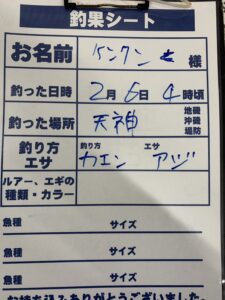 釣果シート
お名前 ケンケン 様
釣った日時 2月6日 4時頃
釣った場所 天神 地磯 沖磯 堤防
釣り方 エサ 釣り方 カエン エサ アジ
ルアー、エギの種類・カラー
魚種 サイズ
魚種 サイズ
魚種 サイズ
お持ち込みありがとうございました